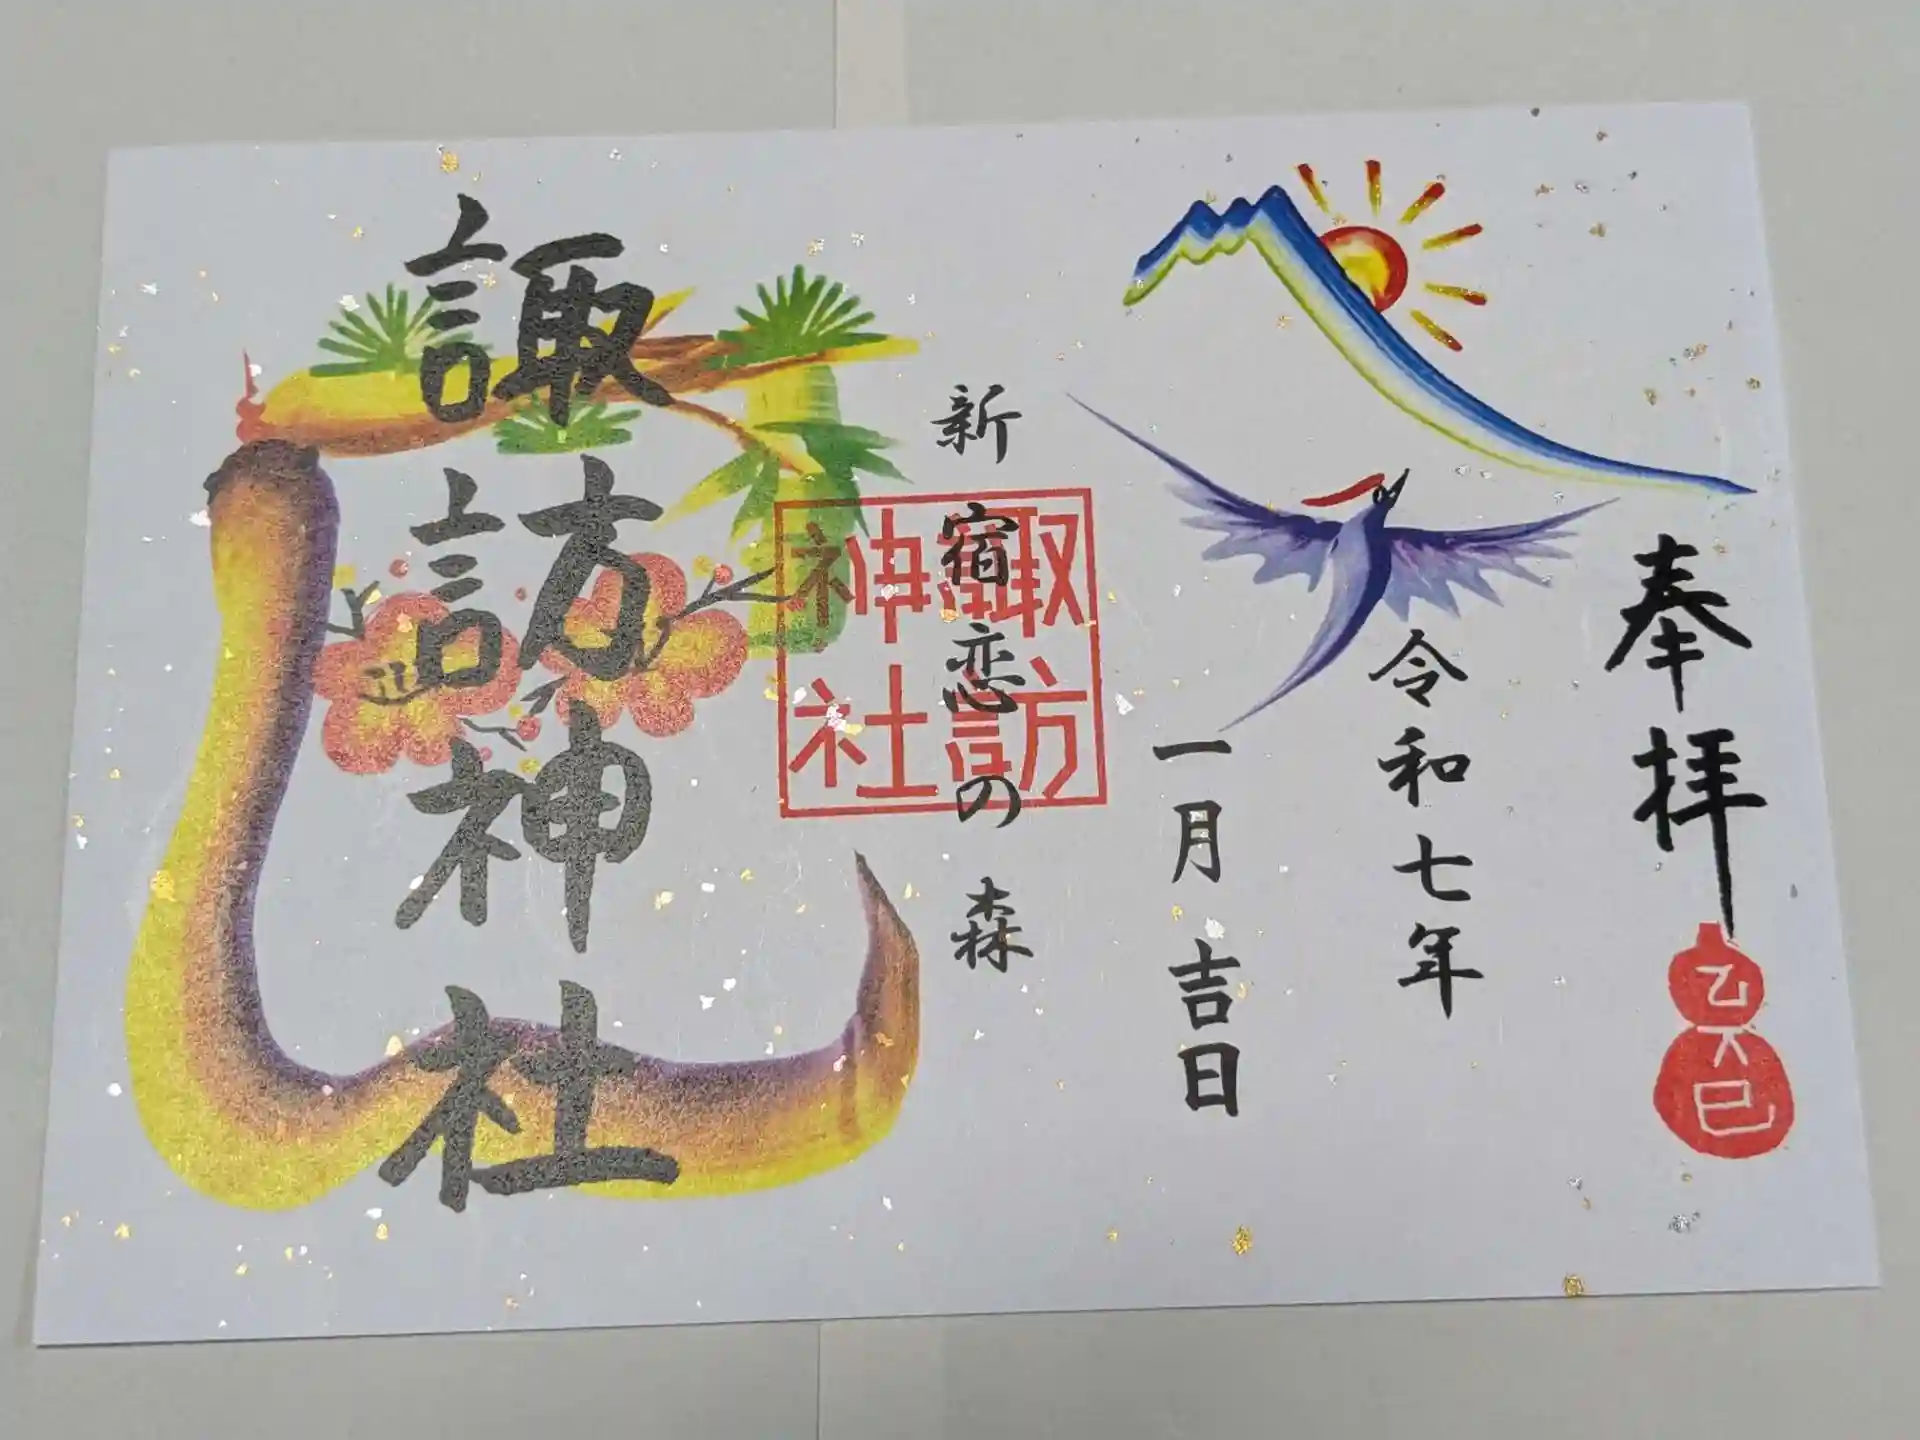 奉拝
乙巳
令和七年
一月吉日
新宿恋の森
諏訪
神社
諏訪神社